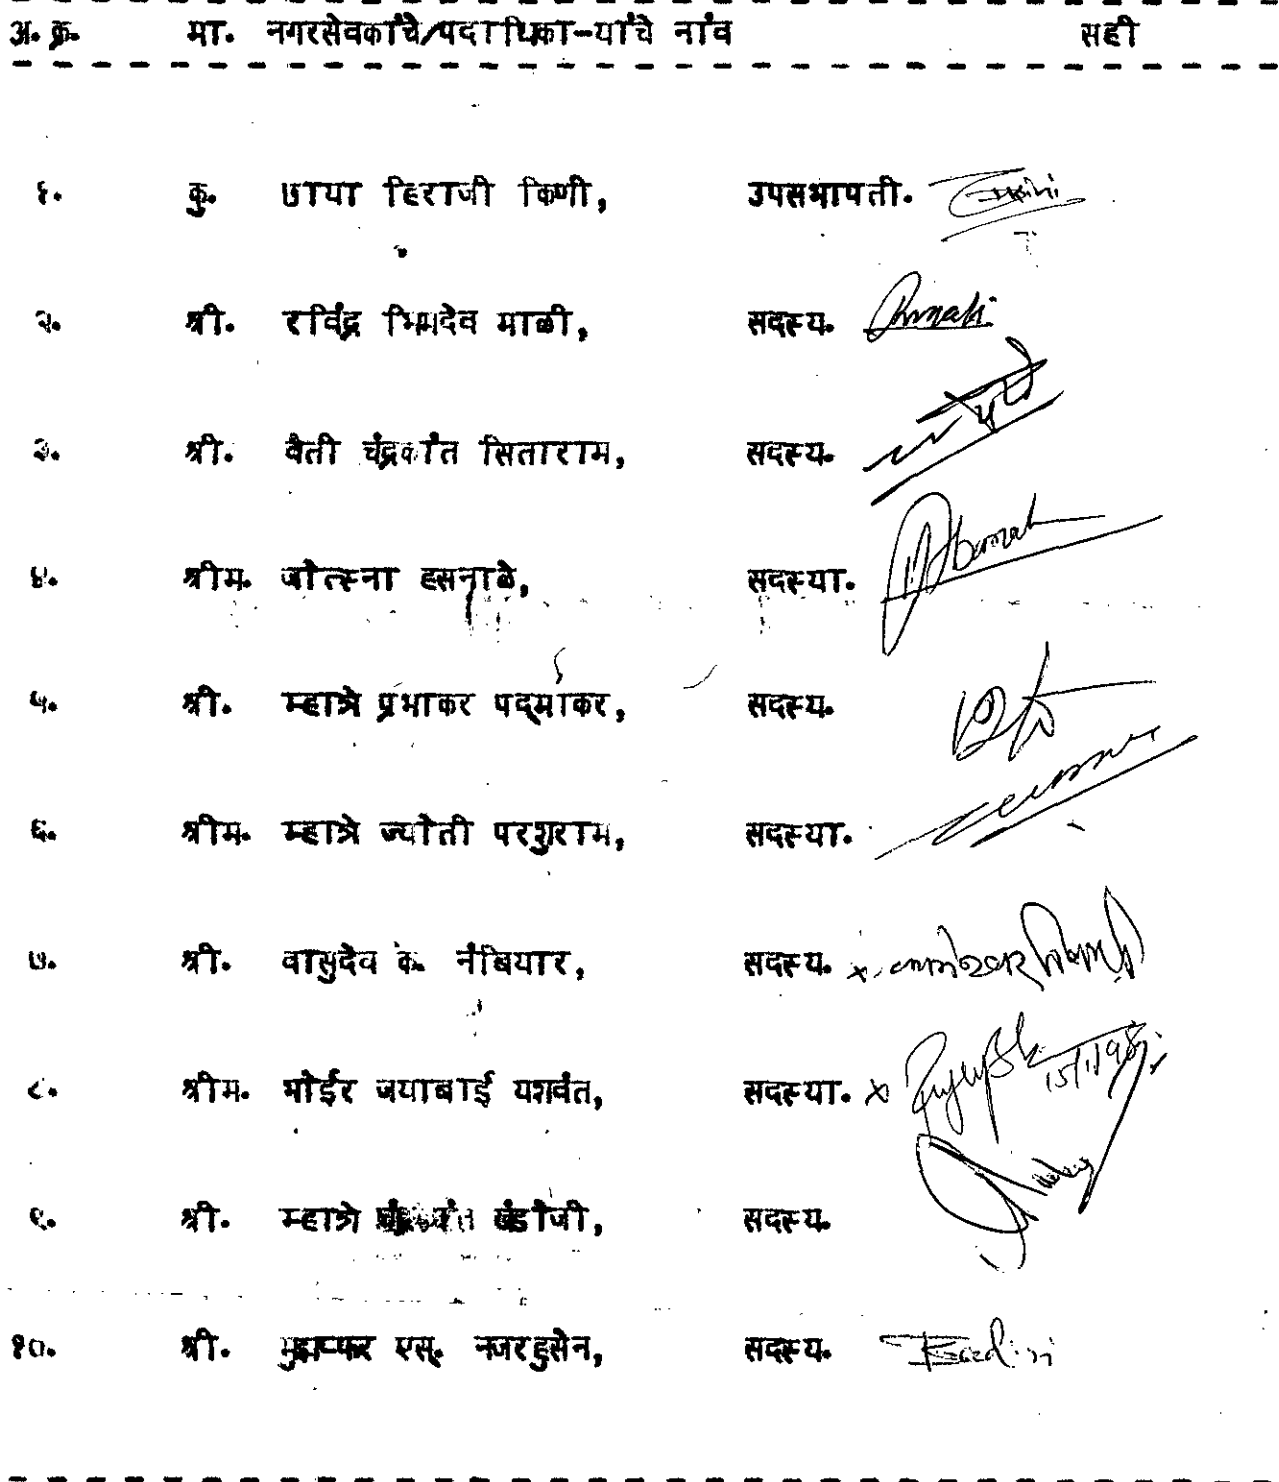 अ. क्र. मा. नगरसेवकांचे/पदाधिका-यांचे नांव सही
१. कु. छाया हिराजी किणी, उपसभापती.
२. श्री. रविंद्र भिमदेव माळी, सदस्य.
३. श्री. वैती चंद्रकांत सिताराम, सदस्य.
४. श्रीम. जोत्स्ना हसनाळे, सदस्या.
५. श्री. म्हात्रे प्रभाकर पद्माकर, सदस्य.
६. श्रीम. म्हात्रे ज्योती परशुराम, सदस्या.
७. श्री. वासुदेव के. नंबियार, सदस्य.
८. श्रीम. भोईर जयाबाई यशवंत, सदस्या.
९. श्री. म्हात्रे चंद्रकांत खंडोजी, सदस्य.
१०. श्री. मुझफ्फर एस्. नजरहुसेन, सदस्य.